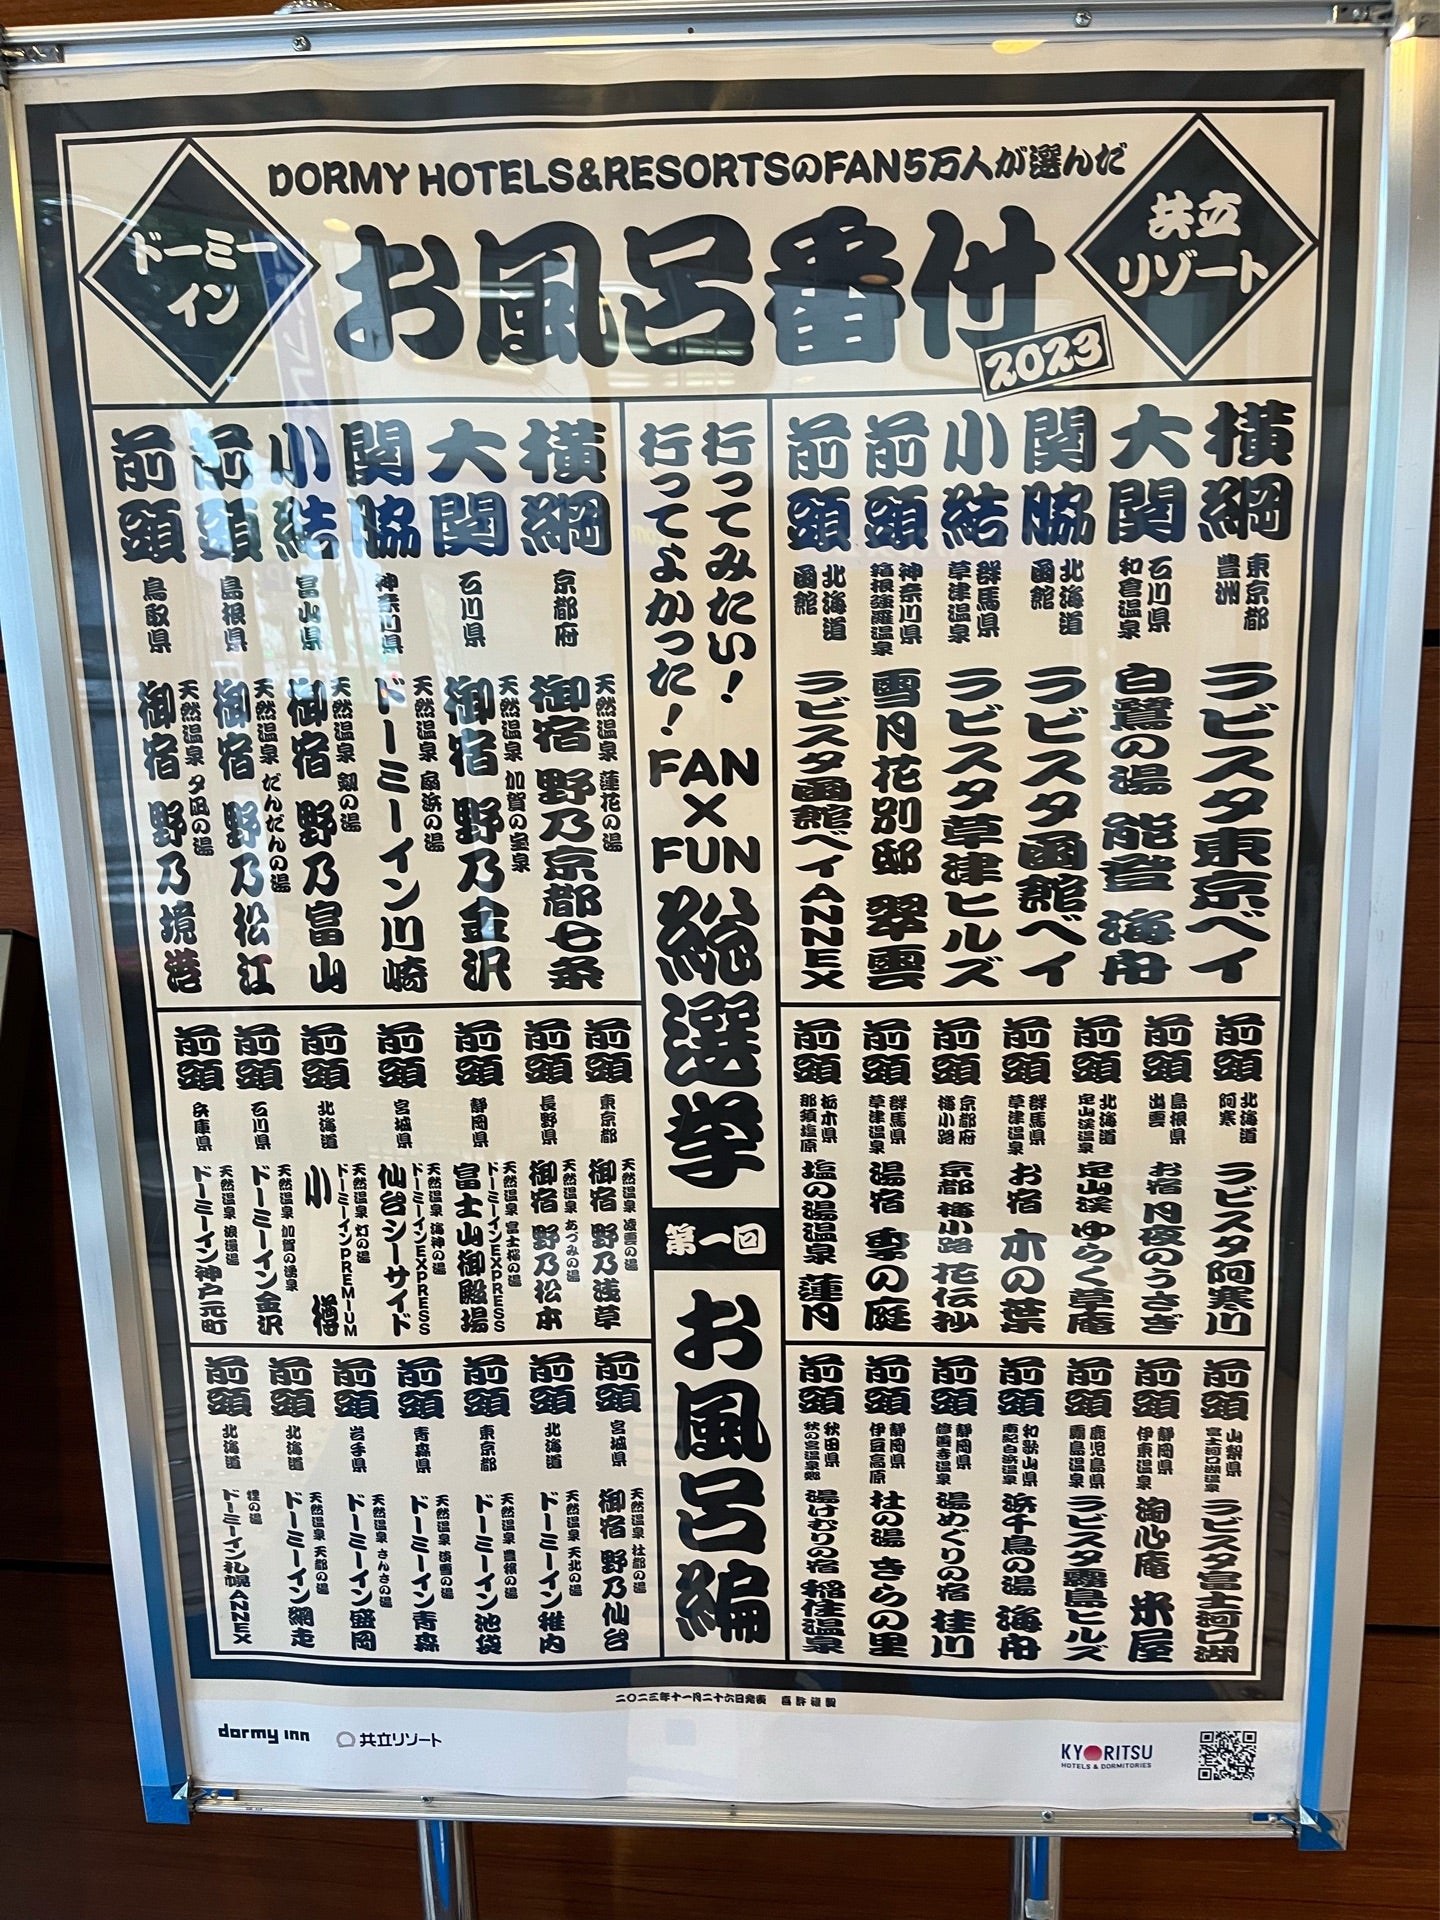 DORMY HOTELS&RESORTSのFAN5万人が選んだ
お風呂番付
2023
共立
リゾート
ドーミー
イン
横綱 東京都 豊洲 ラビスタ東京ベイ
大関 石川県 和倉温泉 白鷺の湯 能登 海舟
関脇 北海道 函館 ラビスタ函館ベイ
小結 群馬県 草津温泉 ラビスタ草津ヒルズ
前頭 神奈川県 箱根強羅温泉 雪月花別邸 翠雲
前頭 北海道 函館 ラビスタ函館ベイANNEX
前頭 北海道 阿寒 ラビスタ阿寒川
前頭 島根県 出雲 お宿 月夜のうさぎ
前頭 北海道 定山渓温泉 定山渓 ゆらく草庵
前頭 群馬県 草津温泉 お宿 木の葉
前頭 京都府 梅小路 京都 梅小路 花伝抄
前頭 群馬県 草津温泉 湯宿 季の庭
前頭 栃木県 那須塩原 塩の湯温泉 蓮月
前頭 山梨県 富士河口湖温泉 ラビスタ富士河口湖
前頭 静岡県 伊東温泉 淘心庵 米屋
前頭 鹿児島県 霧島温泉 ラビスタ霧島ヒルズ
前頭 和歌山県 南紀白浜温泉 浜千鳥の湯 海舟
前頭 静岡県 修善寺温泉 湯めぐりの宿 桂川
前頭 静岡県 伊豆高原 杜の湯 きらの里
前頭 秋田県 秋の宮温泉郷 湯けむりの宿 稲住温泉
行ってみたい！
行ってよかった！
FAN
×
FUN
総選挙
第一回
お風呂編
横綱 京都府 天然温泉 蓮花の湯 御宿 野乃京都七条
大関 石川県 天然温泉 加賀の宝泉 御宿 野乃金沢
関脇 神奈川県 天然温泉 扇浜の湯 ドーミーイン川崎
小結 富山県 天然温泉 剱の湯 御宿 野乃富山
前頭 島根県 天然温泉 だんだんの湯 御宿 野乃松江
前頭 鳥取県 天然温泉 夕凪の湯 御宿 野乃境港
前頭 東京都 天然温泉 凌雲の湯 御宿 野乃浅草
前頭 長野県 天然温泉 あづみの湯 御宿 野乃松本
前頭 静岡県 天然温泉 富士桜の湯 ドーミーインEXPRESS 富士山御殿場
前頭 宮城県 天然温泉 海神の湯 ドーミーインEXPRESS 仙台シーサイド
前頭 北海道 天然温泉 灯の湯 ドーミーインPREMIUM 小樽
前頭 石川県 天然温泉 加賀の湧泉 ドーミーイン金沢
前頭 兵庫県 天然温泉 浪漫湯 ドーミーイン神戸元町
前頭 宮城県 天然温泉 杜都の湯 御宿 野乃仙台
前頭 北海道 天然温泉 天北の湯 ドーミーイン稚内
前頭 東京都 天然温泉 豊穣の湯 ドーミーイン池袋
前頭 青森県 天然温泉 の湯 ドーミーイン青森
前頭 岩手県 天然温泉 さんさの湯 ドーミーイン盛岡
前頭 北海道 天然温泉 天都の湯 ドーミーイン網走
前頭 北海道 の湯 ドーミーイン札幌ANNEX
二〇二三年十一月二十六日発表
dormy inn
共立リゾート
KYORITSU
HOTELS & DORMITORIES